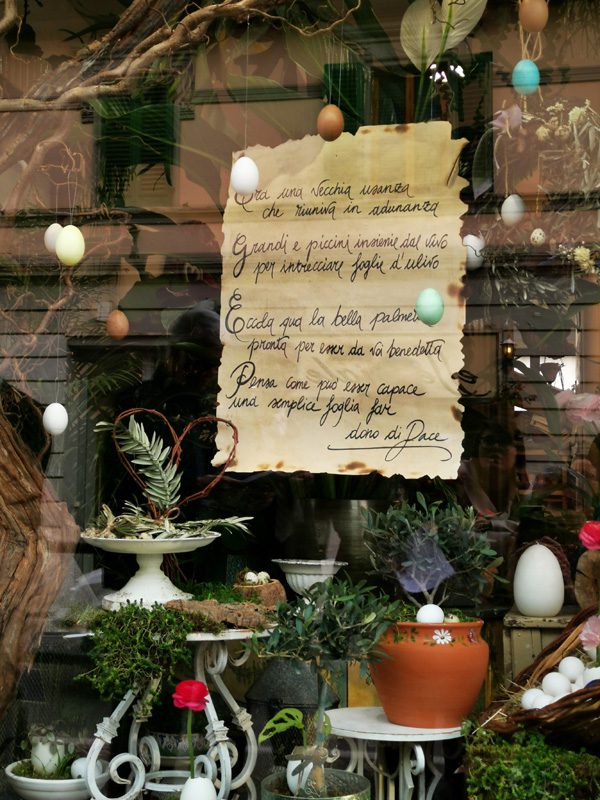 Era una vecchia usanza
che riuniva in adunanza
Grandi e piccini insieme dal vivo
per intrecciare foglie d'ulivo
Eccola qua la bella palmetta
pronta per esser da voi benedetta
Pensa come può esser capace
una semplice foglia far
dono di Pace